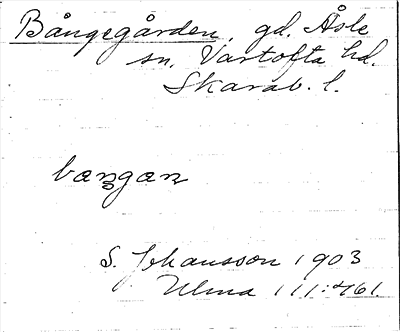 Bångegården, gd. Åsle
sn. Vartofta hd.
Skarab. l.
baŋgan
S. Johansson 1903
Ulma 111:461.